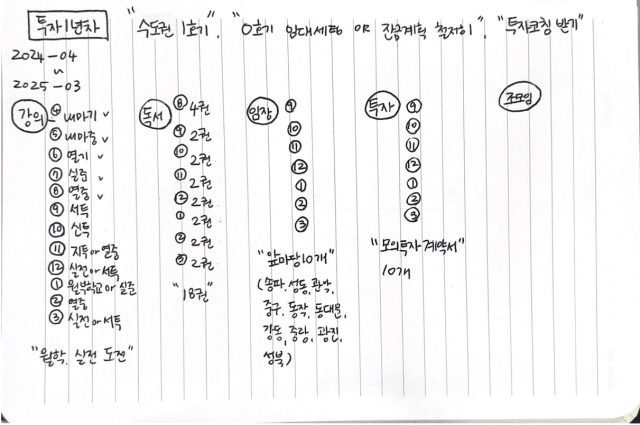 투자 1년차 "수도권 1호기", "0호기 임대세팅 OR 잔금계획 철저히", "투자코칭 받기"
2024-04
~
2025-03
강의
④ 내마기 v
⑤ 내마중 v
⑥ 열기 v
⑦ 실준 v
⑧ 열중 v
⑨ 서투
⑩ 신투
⑪ 지투 or 열중
⑫ 실전 or 서투
① 월부학교 or 실준
② 열중
③ 실전 or 서투
"월학, 실전 도전"
독서
⑧ 4권
⑨ 2권
⑩ 2권
⑪ 2권
⑫ 2권
① 2권
② 2권
③ 2권
"18권"
임장
⑨
⑩
⑪
⑫
①
②
③
"앞마당 10개"
(송파, 성동, 관악,
중구, 동작, 동대문,
강동, 중랑, 광진,
성북)
투자
⑨
⑩
⑪
⑫
①
②
③
"모의투자 계약서"
10개
조모임